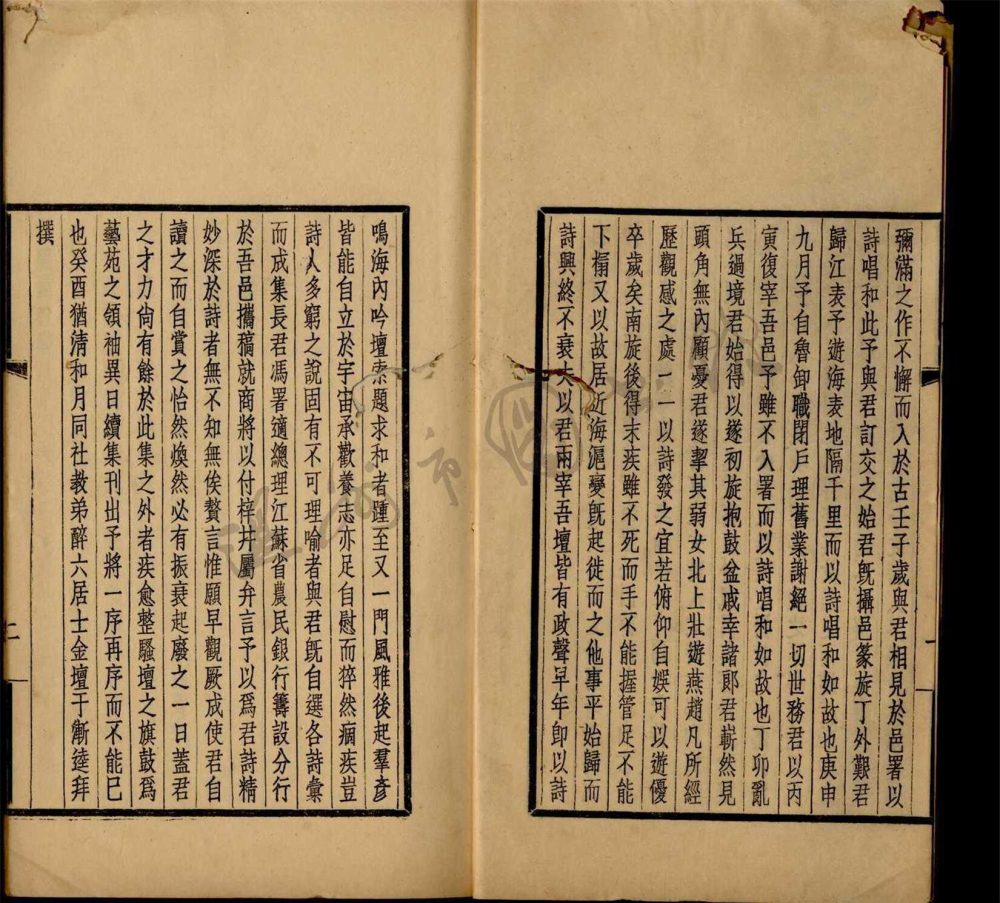 彌滿之作不懈而入於古壬子歲與君相見於邑署以
詩唱和此予與君訂交之始君旣攝邑篆旋丁外艱君
歸江表予遊海表地隔千里而以詩唱和如故也庚申
九月予自魯卸職閉戶理舊業謝絕一切世務君以丙
寅復宰吾邑予雖不入署而以詩唱和如故也丁卯亂
兵過境君始得以遂初旋抱鼓盆戚幸諸郞君嶄然見
頭角無內顧憂君遂挈其弱女北上壯遊燕趙凡所經
歷觀感之處一一以詩發之宜若俯仰自娛可以遊優
卒歲矣南旋後得末疾雖不死而手不能握管足不能
下榻又以故居近海滬變旣起徙而之他事平始歸而
詩興終不衰夫以君兩宰吾壇皆有政聲早年即以詩
鳴海內吟壇索題求和者踵至又一門風雅後起羣彥
皆能自立於宇宙承歡養志亦足自慰而猝然痼疾豈
詩人多窮之說固有不可理喻者與君旣自選各詩彙
而成集長君馮署適總理江蘇省農民銀行籌設分行
於吾邑攜稿就商將以付梓幷屬弁言予以爲君詩精
妙深於詩者無不知無俟贅言惟願早觀厥成使君自
讀之而自賞之怡然煥然必有振衰起廢之一日蓋君
之才力尙有餘於此集之外者疾愈整騷壇之旗鼓爲
藝苑之領袖異日續集刊出予將一序再序而不能已
也癸酉猶清和月同社敎弟醉六居士金壇于漸逵拜
撰
二